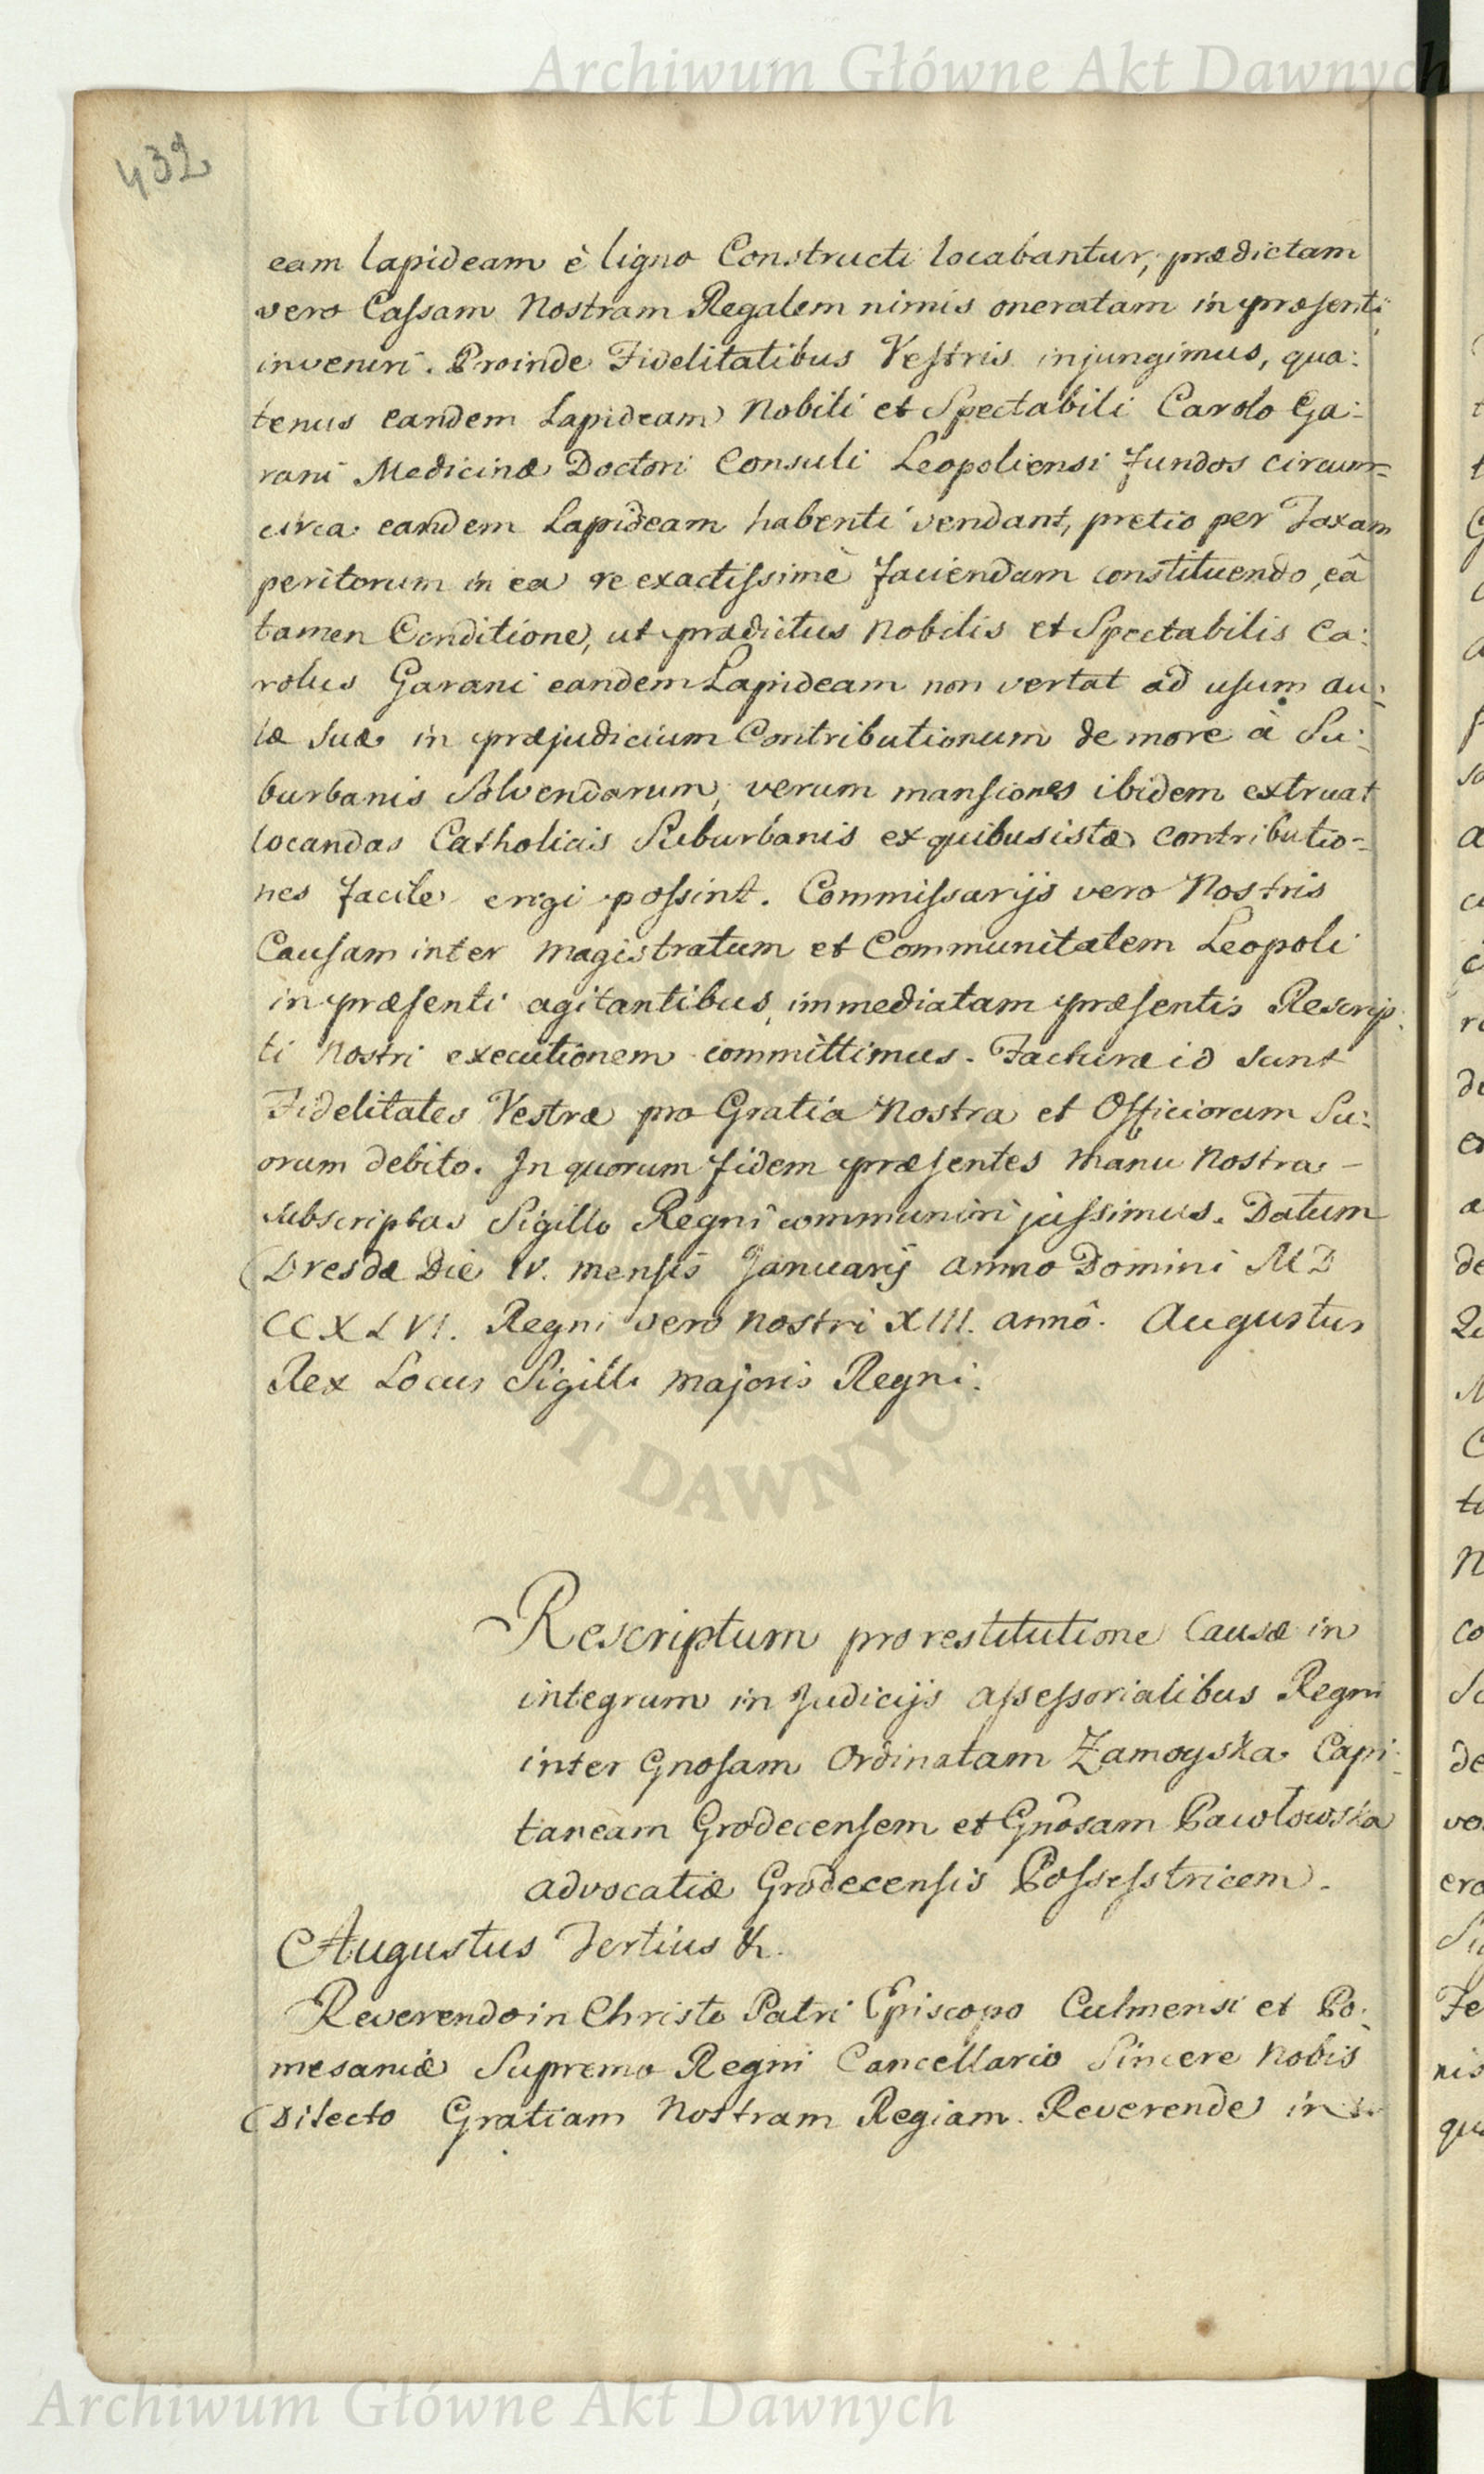 Archiwum Główne Akt Dawnych
432
eam lapideam è ligno Constructi locabantur, prædictam
vero Cassam Nostram Regalem nimis oneratam in præsenti
inveniri. Proinde Fidelitatibus Vestris injungimus, qua:
tenus eandem Lapideam Nobili et Spectabili Carolo Ga:
rani Medicinæ Doctori Consuli Leopoliensi fundos circum=
circa eandem Lapideam habenti vendant, pretio per Taxam
peritorum in ea re exactissimè faciendam constituendo, eâ
tamen Conditione, ut prædictus Nobilis et Spectabilis Ca:
rolus Garani eandem Lapideam non vertat ad usum au:
læ suæ in præjudicium Contributionum de more à Su:
burbanis Solvendarum, verum mansiones ibidem extruat
locandas Catholicis Suburbanis ex quibus istæ contributio=
nes facile exigi possint. Commissarijs vero Nostris
Causam inter Magistratum et Communitatem Leopoli
in præsenti agitantibus, immediatam præsentis Rescrip:
ti Nostri executionem committimus. Facturæ id sunt
Fidelitates Vestræ pro Gratia Nostra et Officiorum Su:
orum debito. In quorum fidem præsentes Manu Nostra -
subscriptas Sigillo Regni communiri jussimus. Datum
Dresdæ Die IV. mensis Januarij Anno Domini MD
CCXLVI. Regni vero Nostri XIII. annô. Augustus
Rex Locus Sigilli Majoris Regni.
AKT DAWNYCH
Rescriptum pro restitutione Causæ in
integrum in Judicijs Assessorialibus Regni
inter Gnosam Ordinatam Zamoyska Capi:
taneam Grodecensem et Gnôsam Pawłowska
Advocatiæ Grodecensis Possesstricem.
Augustus Tertius &.
Reverendo in Christo Patri Episcopo Culmensi et Po:
mesaniæ Supremo Regni Cancellario Sincere Nobis
Dilecto Gratiam Nostram Regiam. Reverende in
Archiwum Główne Akt Dawnych